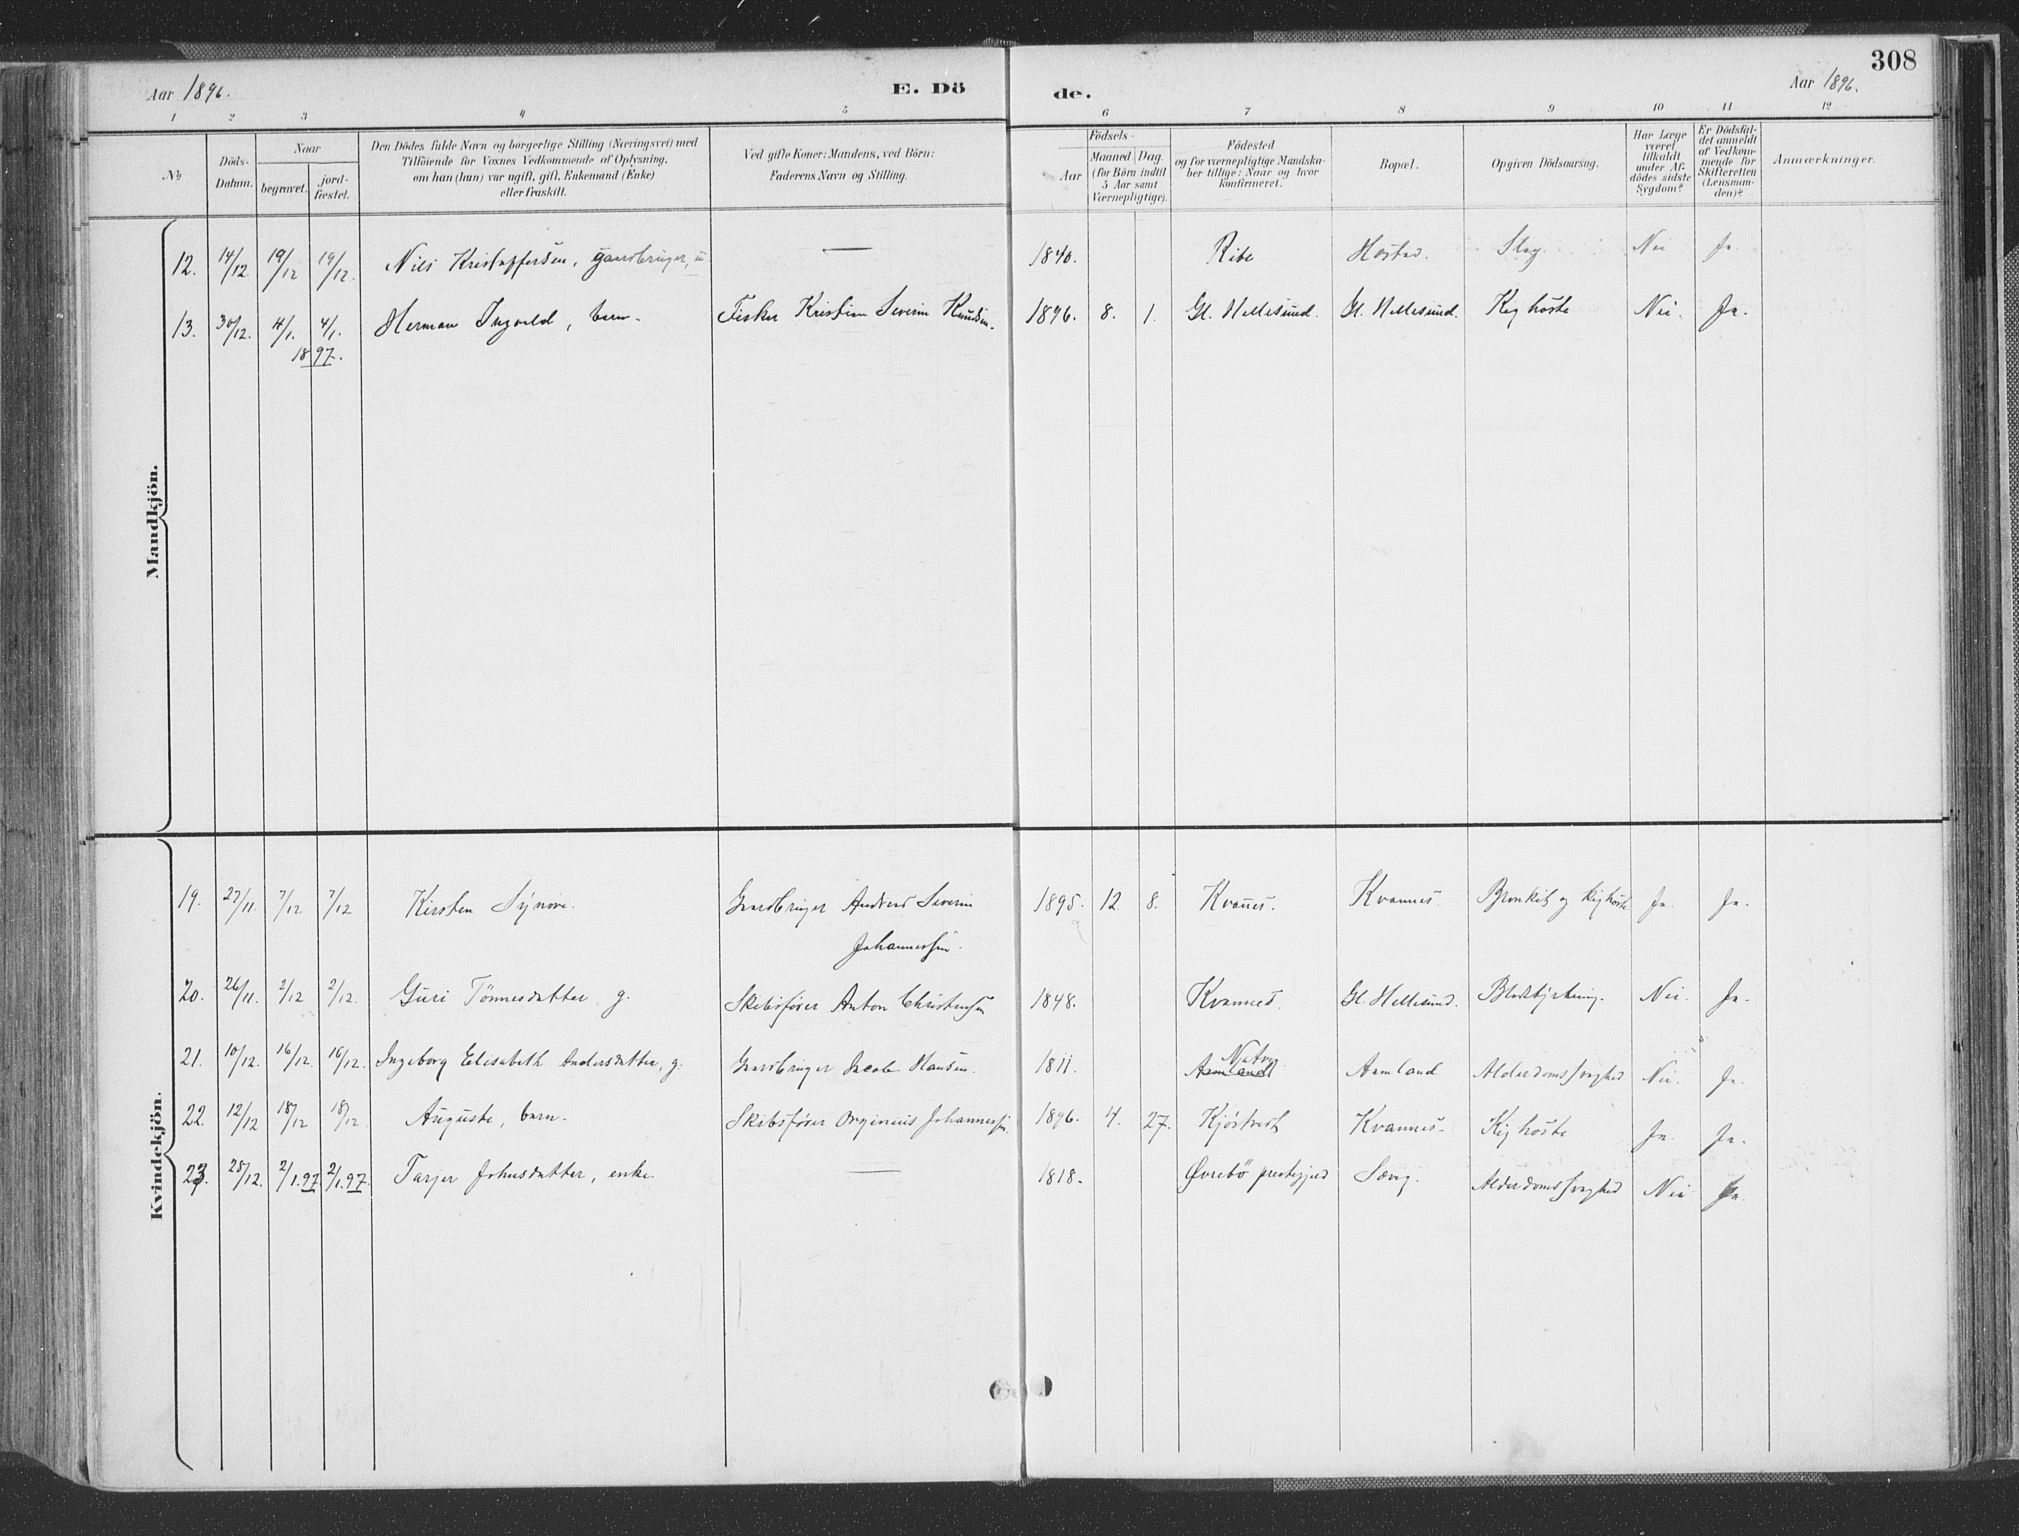 308
Aar 1896.
E. Dö
de.
Aar 1896.
1 2 3 4 5 6 7 8 9 10 11 12
№
Döds-
Datum.
Naar
begravet.
jord-
fæstet.
Den Dödes fulde Navn og borgerlige Stilling (Næringsvei) med
Tilföiende for Voxnes Vedkommende af Oplysning,
om han (hun) var ugift, gift, Enkemand (Enke)
eller fraskilt.
Ved gifte Koner: Mandens, ved Börn:
Faderens Navn og Stilling.
Födsels-
Aar
Maaned. Dag.
(for Börn indtil
5 Aar samt
Værnepligtige).
Födested
og for værnepligtige Mandska-
ber tillige: Naar og hvor
konfirmeret.
Bopæl.
Opgiven Dödsaarsag.
Har Læge
været
tilkaldt
under Af-
dödes sidste
Sygdom?
Er Dödsfal-
det anmeldt
af Vedkom-
mende for
Skifteretten
(Lensman-
den)?
Anmærkninger.
Mandkjön.
12. 14/12 19/12 19/12. Nils Kristoffersen, gaardbruger, u — 1840. Ribe Hostad. Slag. Nei Ja.
13. 30/12. 4/1. 4/1. Herman Ingvald, barn. Fisker Kristian Severin Knudsen. 1896. 8. 1. Gl. Hellesund. Gl. Hellesund. Kighoste Nei. Ja.
1897.
Kvindekjön.
19. 27/11. 7/12 7/12 Kirsten Synove. Gaardbruger Andreas Severin 1895. 12 8. Kvannes. Kvannes. Bronkit og kighoste Ja. Ja.
Johannessen.
20. 26/11. 2/12 2/12. Guri Tönnesdatter, g. Skibsfører Anton Christensen 1848. Kvannes. Gl. Hellesund. Nei. Ja.
21. 10/12. 16/12. 16/12. Ingeborg Elisabeth Andersdatter, g. Gaardbruger Jacob Hansen. 1811. Aamland Aamland Alderdomssvaghed Nei. Ja.
22. 12/12 18/12 18/12 Auguste, barn. Skibsfører Johannessen 1896. 4. 27. Kvannes. Kighoste Ja. Ja.
23. 28/12. 2/1.97 2/1.97. Tarjer Johnsdatter, enke. — 1818. Øvrebö prestegjeld Alderdomssvaghed Nei Ja.